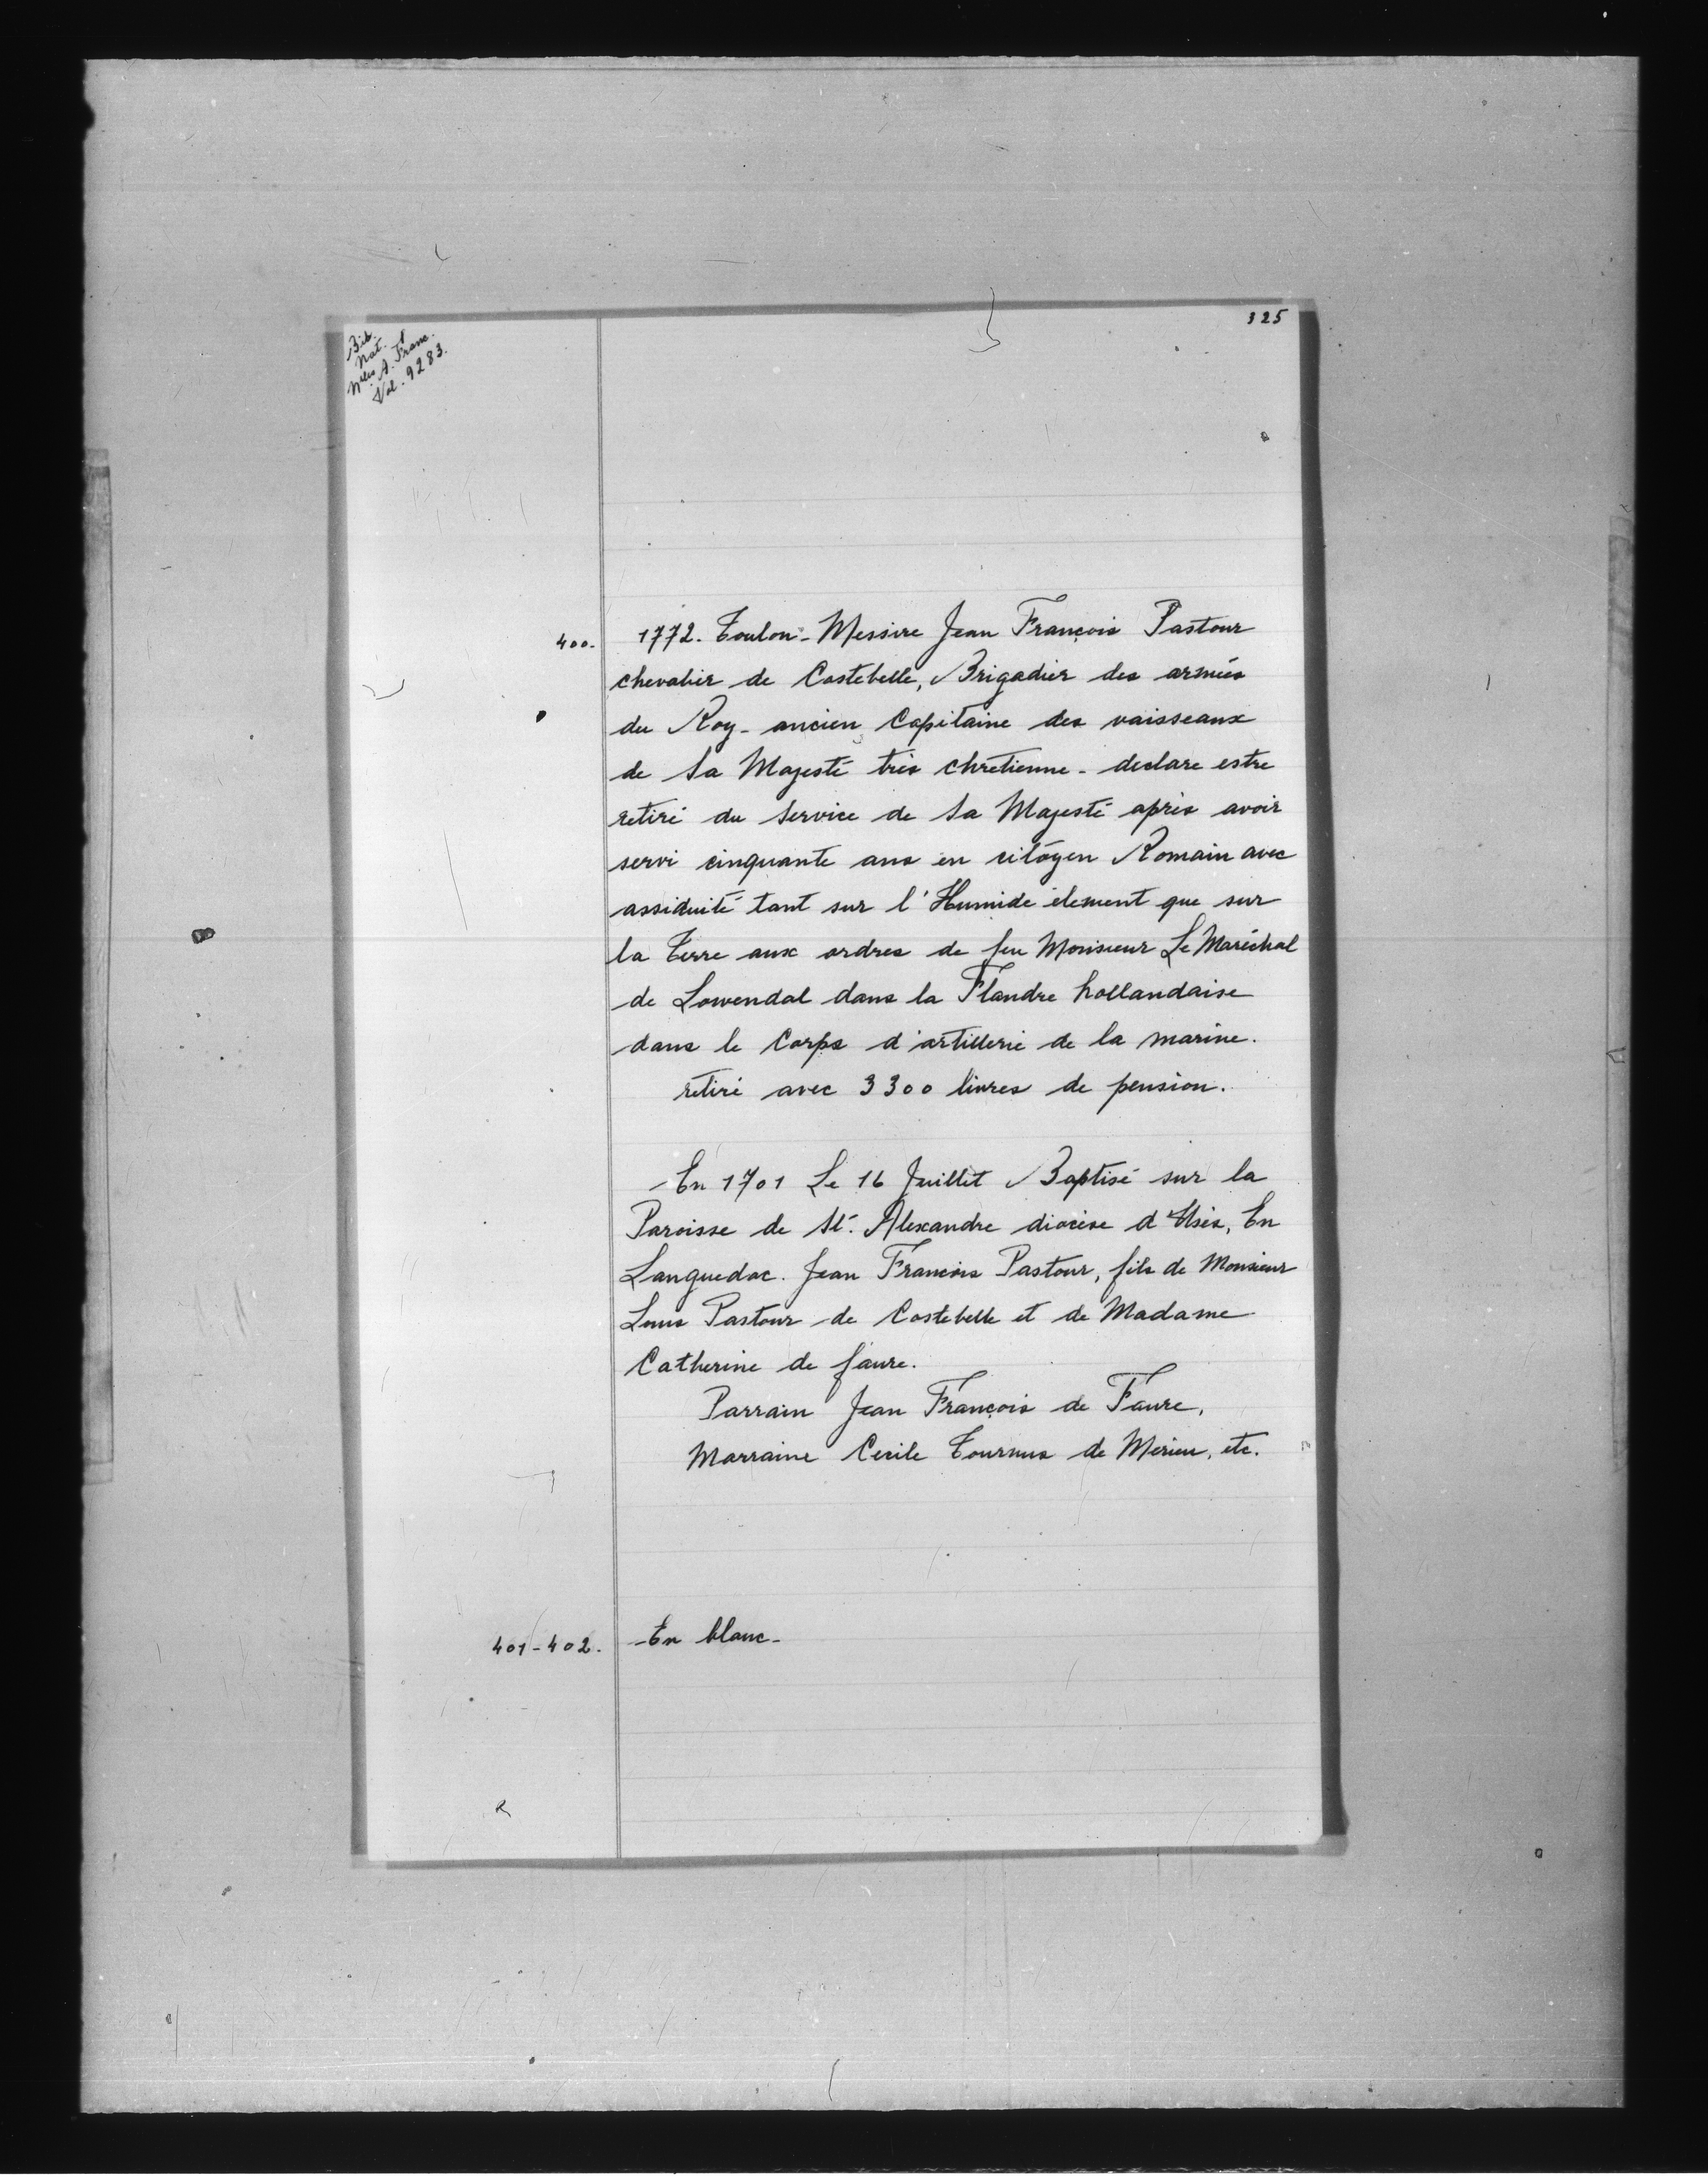 325
Bib.
Nat.
Nelles A. Franc.
Vol. 9283.
400.
1772. Toulon - Messire Jean François Pastour
chevalier de Costebelle, Brigadier des armées
du Roy - ancien Capitaine des vaisseaux
de Sa Majesté très chrétienne - declare estre
retiré du Service de Sa Majesté après avoir
servi cinquante ans en citoyen Romain avec
assiduité tant sur l'Humide élement que sur
la Terre aux ordres de feu Monsieur Le Maréchal
de Lowendal dans la Flandre hollandaise
dans le Corps d'artillerie de la marine.
retiré avec 3300 livres de pension.
En 1701 Le 16 Juillet Baptisé sur la
Paroisse de St. Alexandre diocèse d'Usès, En
Languedoc. Jean François Pastour, fils de Monsieur
Louis Pastour de Costebelle et de Madame
Catherine de faure.
Parrain Jean François de Faure,
Marraine Cecile Tournus de Merieu, etc.
401-402.
En blanc -